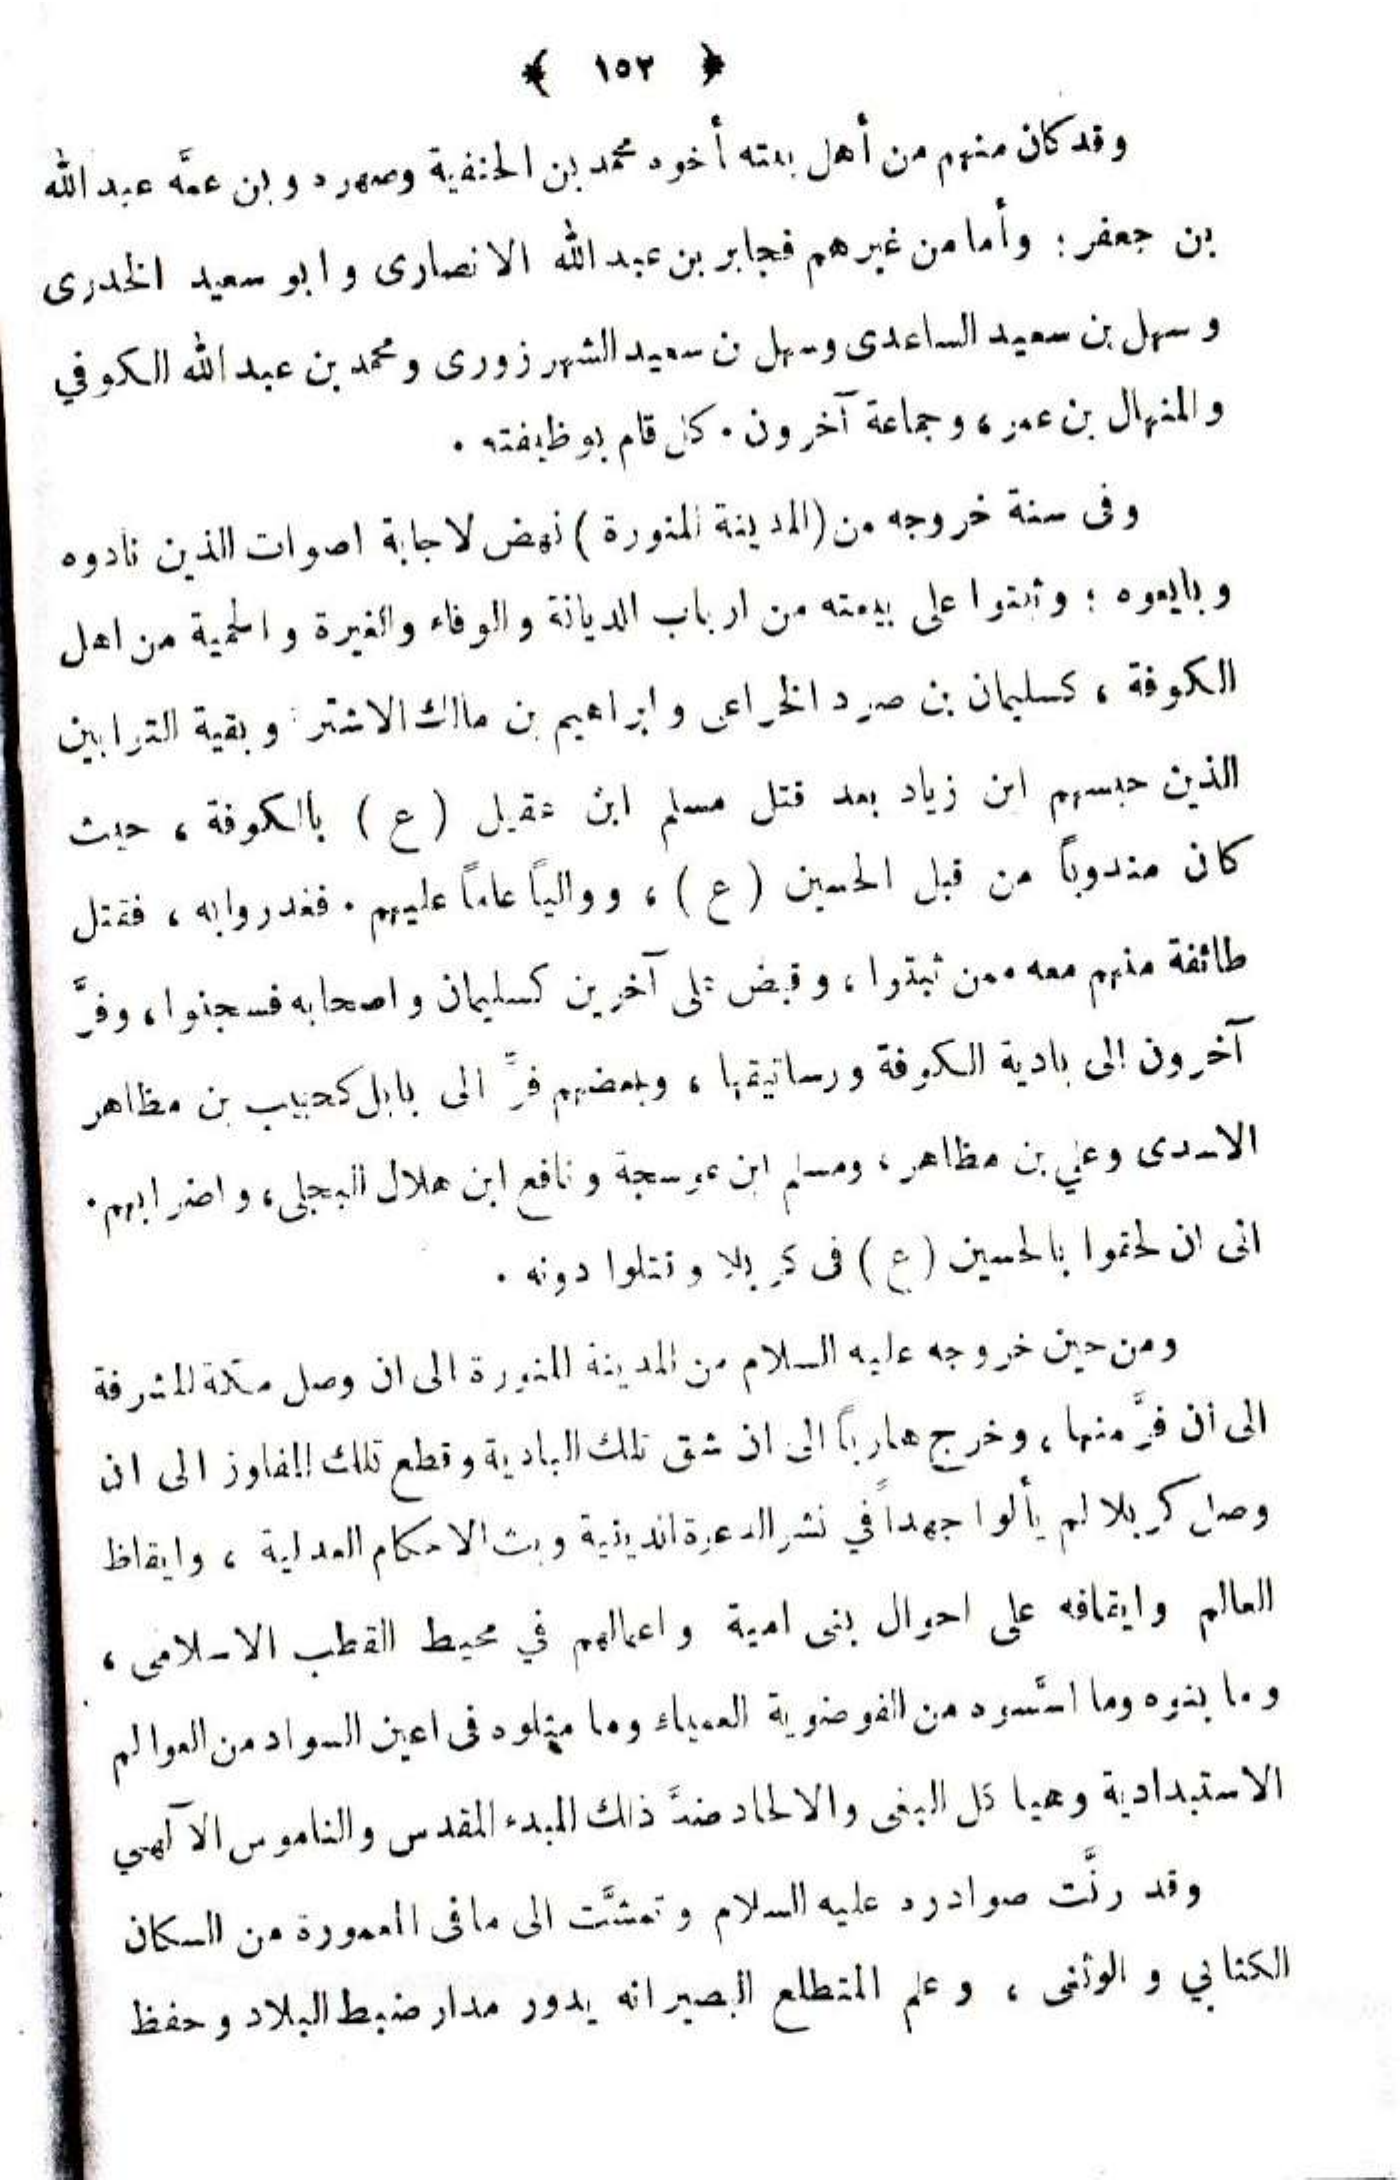 ﴿ ١٥٢ ﴾
وقد كان منهم من أهل بيته أخوه محمد بن الحنفية وصهره وبن عمَّه عبد الله
بن جعفر : وأما من غيرهم فجابر بن عبد الله الانصارى وابو سعيد الخدرى
وسهل بن سعيد الساعدى وسهل بن سعيد الشهر زورى ومحمد بن عبد الله الكوفي
والمنهال بن عمر ، وجماعة آخرون . كل قام بوظيفته .
وفى سنة خروجه من (المدينة المنورة ) نهض لاجابة اصوات الذين نادوه
وبايعوه ؛ وثبتوا على بيعته من ارباب الديانة والوفاء والغيرة والحمية من اهل
الكوفة ، كسليمان بن صرد الخزاعى وابراهيم بن مالك الاشتر وبقية الترابين
الذين حبسهم ابن زياد بعد قتل مسلم ابن عقيل ( ع ) بالكوفة ، حيث
كان مندوباً من قبل الحسين ( ع ) ، ووالياً عاماً عليهم . فغدروا به ، فقتل
طائفة منهم معه ممن ثبتوا ، وقبض على آخرين كسليمان واصحابه فسجنوا ، وفرَّ
آخرون الى بادية الكوفة ورساتيقها ، وبعضهم فرَّ الى بابل كحبيب بن مظاهر
الاسدى وعلي بن مظاهر ، ومسلم ابن عوسجة ونافع ابن هلال البجلى ، واضرابهم .
الى ان لحقوا بالحسين ( ع ) فى كربلا وقتلوا دونه .
ومن حين خروجه عليه السلام من المدينة المنورة الى ان وصل مكة المشرفة
الى أن فرَّ منها ، وخرج هارباً الى ان شق تلك البادية وقطع تلك المفاوز الى ان
وصل كربلا لم يألوا جهداً في نشر الدعوة الدينية وبث الاحكام العدلية ، وايقاظ
العالم وايقافه على احوال بنى امية واعمالهم في محيط القطب الاسلامى ،
وما بنوه وما اسَّسوه من الفوضوية العمياء وما مثلوه فى اعين السواد من العوالم
الاستبدادية وهيا كل البغى والالحاد ضدَّ ذلك المبدء المقدس والناموس الآلهي
وقد رنَّت صوادره عليه السلام وتمشَّت الى ما فى المعمورة من السكان
الكتابي والوثنى ، وعلم المتطلع البصير انه يدور مدار ضبط البلاد وحفظ